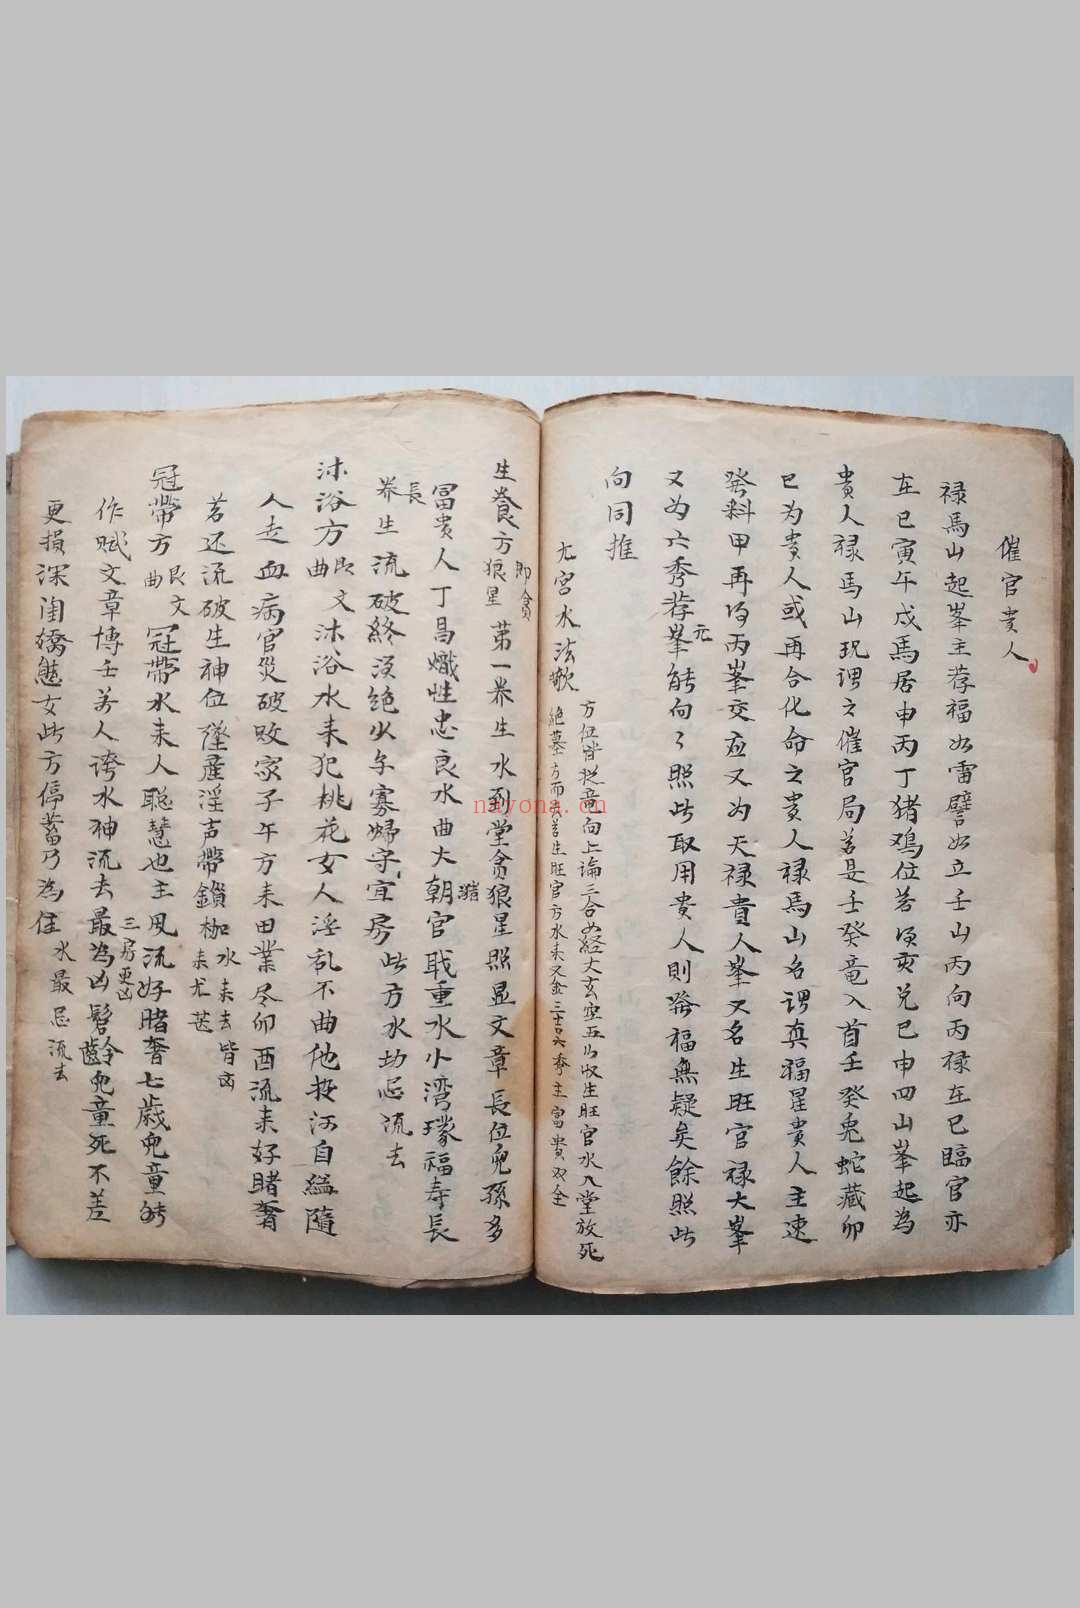 催官貴人
禄馬山起峯主荐福如雷譬如立壬山丙向丙禄在巳臨官亦
在巳寅午戌馬居申丙丁猪鸡位若頂亥兑巳申四山峯起為
貴人禄馬山現谓之催官局若是壬癸竜入首壬癸兎蛇藏卯
巳为貴人或再合化命之貴人禄馬山名謂真福星貴人主速
發科甲再得丙峯交应又为天禄貴人峯又名生旺官禄大峯
又为六秀荐元峯能向々照此取用貴人則發福無疑矣餘照此
向同推
九宮水法歌
方位皆從音向上論三合如経大玄空五行收生旺官水入堂放死
絶墓方而去若生旺官方水来又金三吉六秀主富貴双全
生養方即貪狼星第一养生水到堂贪狼星照显文章長位兒孫多
冨貴人丁昌熾性忠良水曲大朝官戢重水小湾環福寿長
养生流破終須絶少年寡婦守宜房此方水切忌流去
沐浴方即文曲沐浴水来犯桃花女人淫乱不由他投河自縊隨
人走血病官災破敗家子午方来田業尽卯酉流来好賭奢
若还流破生神位墮産淫声帶鎖枷水来去皆凶来尤甚
冠帶方即文曲冠帶水来人聪慧也主風流好賭奢七歲兒童能
作赋文章博士万人誇水神流去最為凶髫齡兒童死不差
三房更凶
更損深闺嬌態女此方停蓄乃為佳水最忌流去
nayona.cn